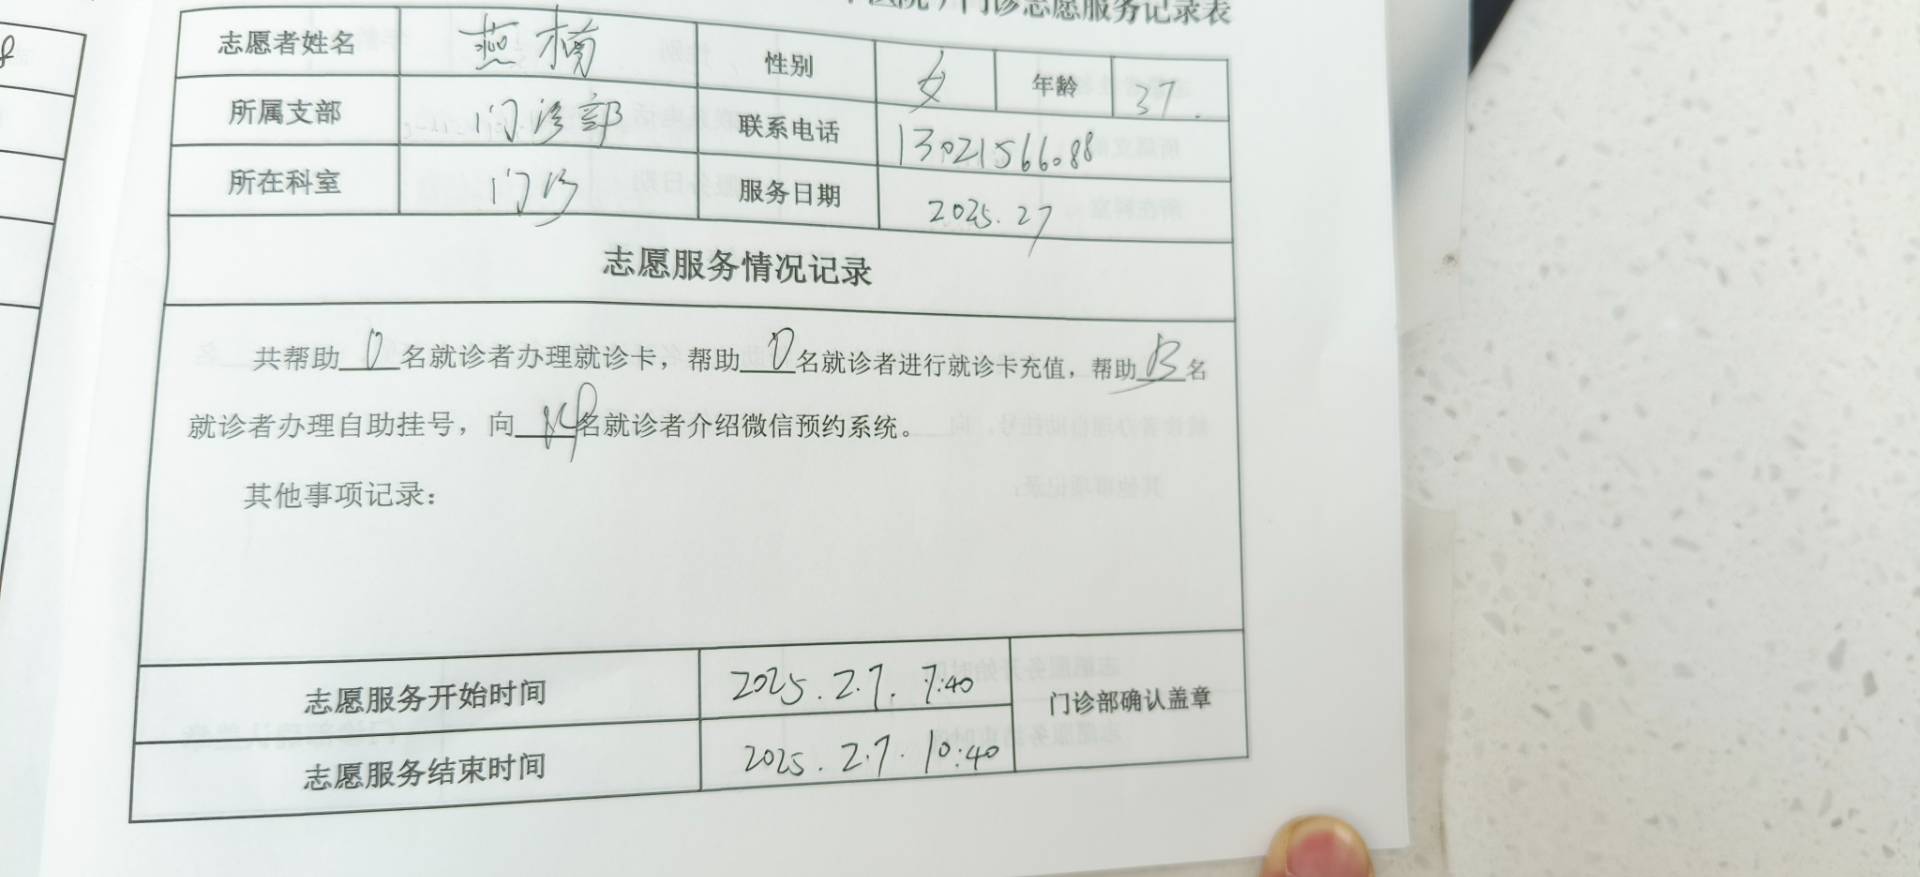 医院门诊志愿服务记录表
志愿者姓名 燕楠 性别 女 年龄 37.
所属支部 门诊部 联系电话 13021566088
所在科室 门诊 服务日期 2025.27
志愿服务情况记录
共帮助0名就诊者办理就诊卡，帮助0名就诊者进行就诊卡充值，帮助13名
就诊者办理自助挂号，向名就诊者介绍微信预约系统。
其他事项记录：
志愿服务开始时间 2025.2.7. 7:40 门诊部确认盖章
志愿服务结束时间 2025.2.7. 10:40